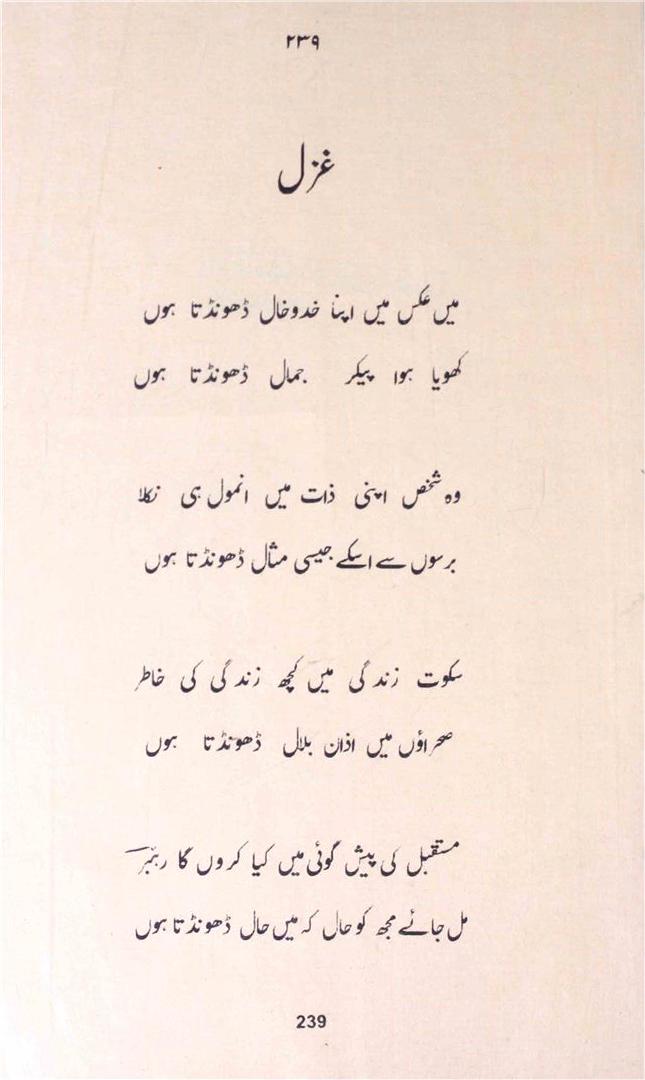 ۲۳۹
غزل
میں عکس میں اپنا خدوخال ڈھونڈتا ہوں
کھویا ہوا پیکر جمال ڈھونڈتا ہوں
وہ شخص اپنی ذات میں انمول ہی نکلا
برسوں سے اسکے جیسی مثال ڈھونڈتا ہوں
سکوت زندگی میں کچھ زندگی کی خاطر
صحراؤں میں اذان بلال ڈھونڈتا ہوں
مستقبل کی پیش گوئی میں کیا کروں گا رہبر
مل جائے مجھ کو حال کہ میں حال ڈھونڈتا ہوں
239